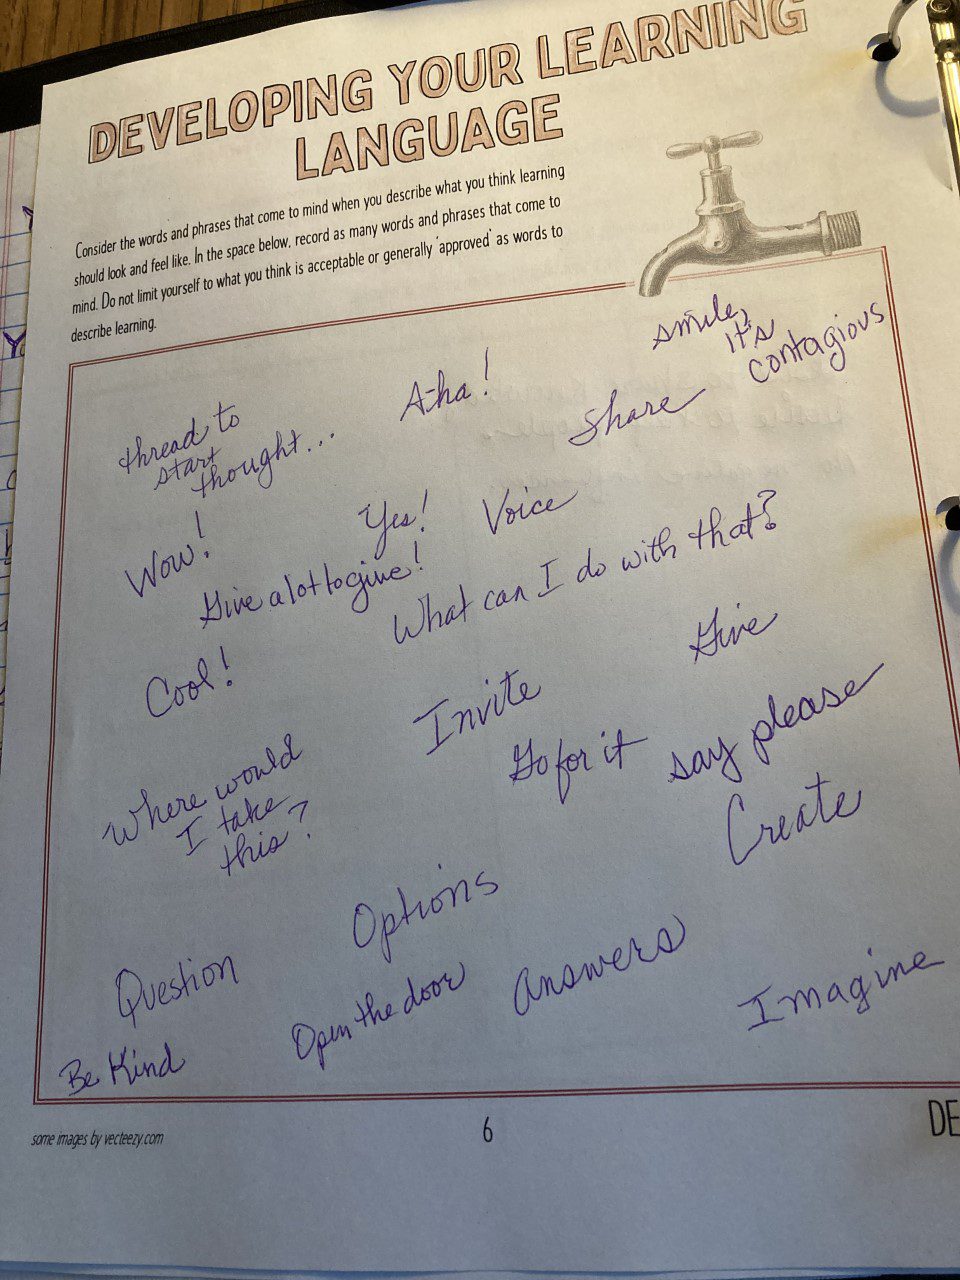 DEVELOPING YOUR LEARNING
LANGUAGE
Consider the words and phrases that come to mind when you describe what you think learning
should look and feel like. In the space below, record as many words and phrases that come to
mind. Do not limit yourself to what you think is acceptable or generally 'approved' as words to
describe learning.
smile,
It's
contagious
A-ha!
Share
thread to
start
thought...
Yes!
Voice
Wow!
Give a lot to give!
What can I do with that?
Give
Cool!
Invite
Go for it
say please
Where would
I take
this?
Create
Options
Question
Open the door
Answers
Imagine
Be Kind
some images by vecteezy.com
6
DE